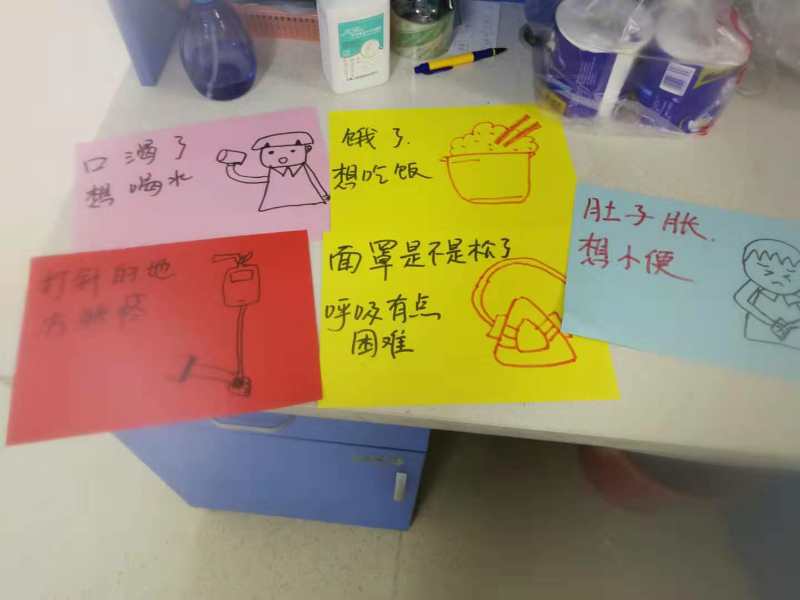 口渴了
想喝水
饿了.
想吃饭
肚子胀.
想小便
打针的地
方
面罩是不是松了
呼吸有点
困难